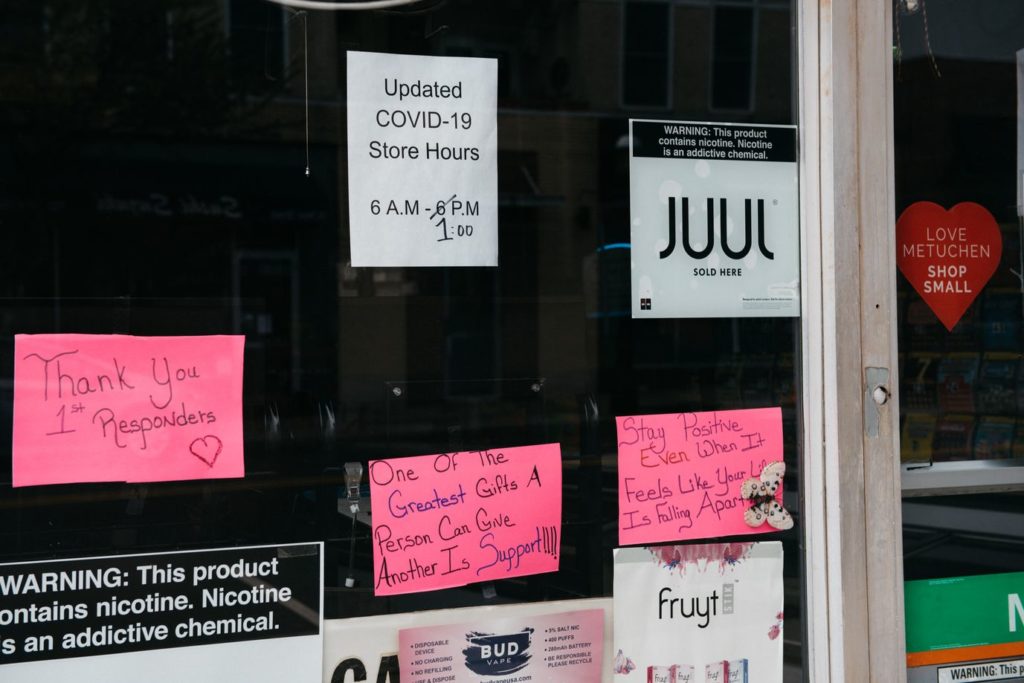 Updated
COVID-19
Store Hours
6 A.M - 6 P.M
1:00
WARNING: This product
contains nicotine. Nicotine
is an addictive chemical.
JUUL
SOLD HERE
LOVE
METUCHEN
SHOP
SMALL
Thank You
1st Responders
One Of The
Greatest Gifts A
Person Can Give
Another Is Support!!!!
Stay Positive
Even When It
Feels Like Your
Is Falling Apart
WARNING: This product
ontains nicotine. Nicotine
s an addictive chemical.
• DISPOSABLE
DEVICE
• NO CHARGING
• NO REFILLING
• USE & DISPOSE
BUD
VAPE
• 5% SALT NIC
• 400 PUFFS
• 280mAh BATTERY
• BE RESPONSIBLE
PLEASE RECYCLE
fruyt
STIK
WARNING: This p